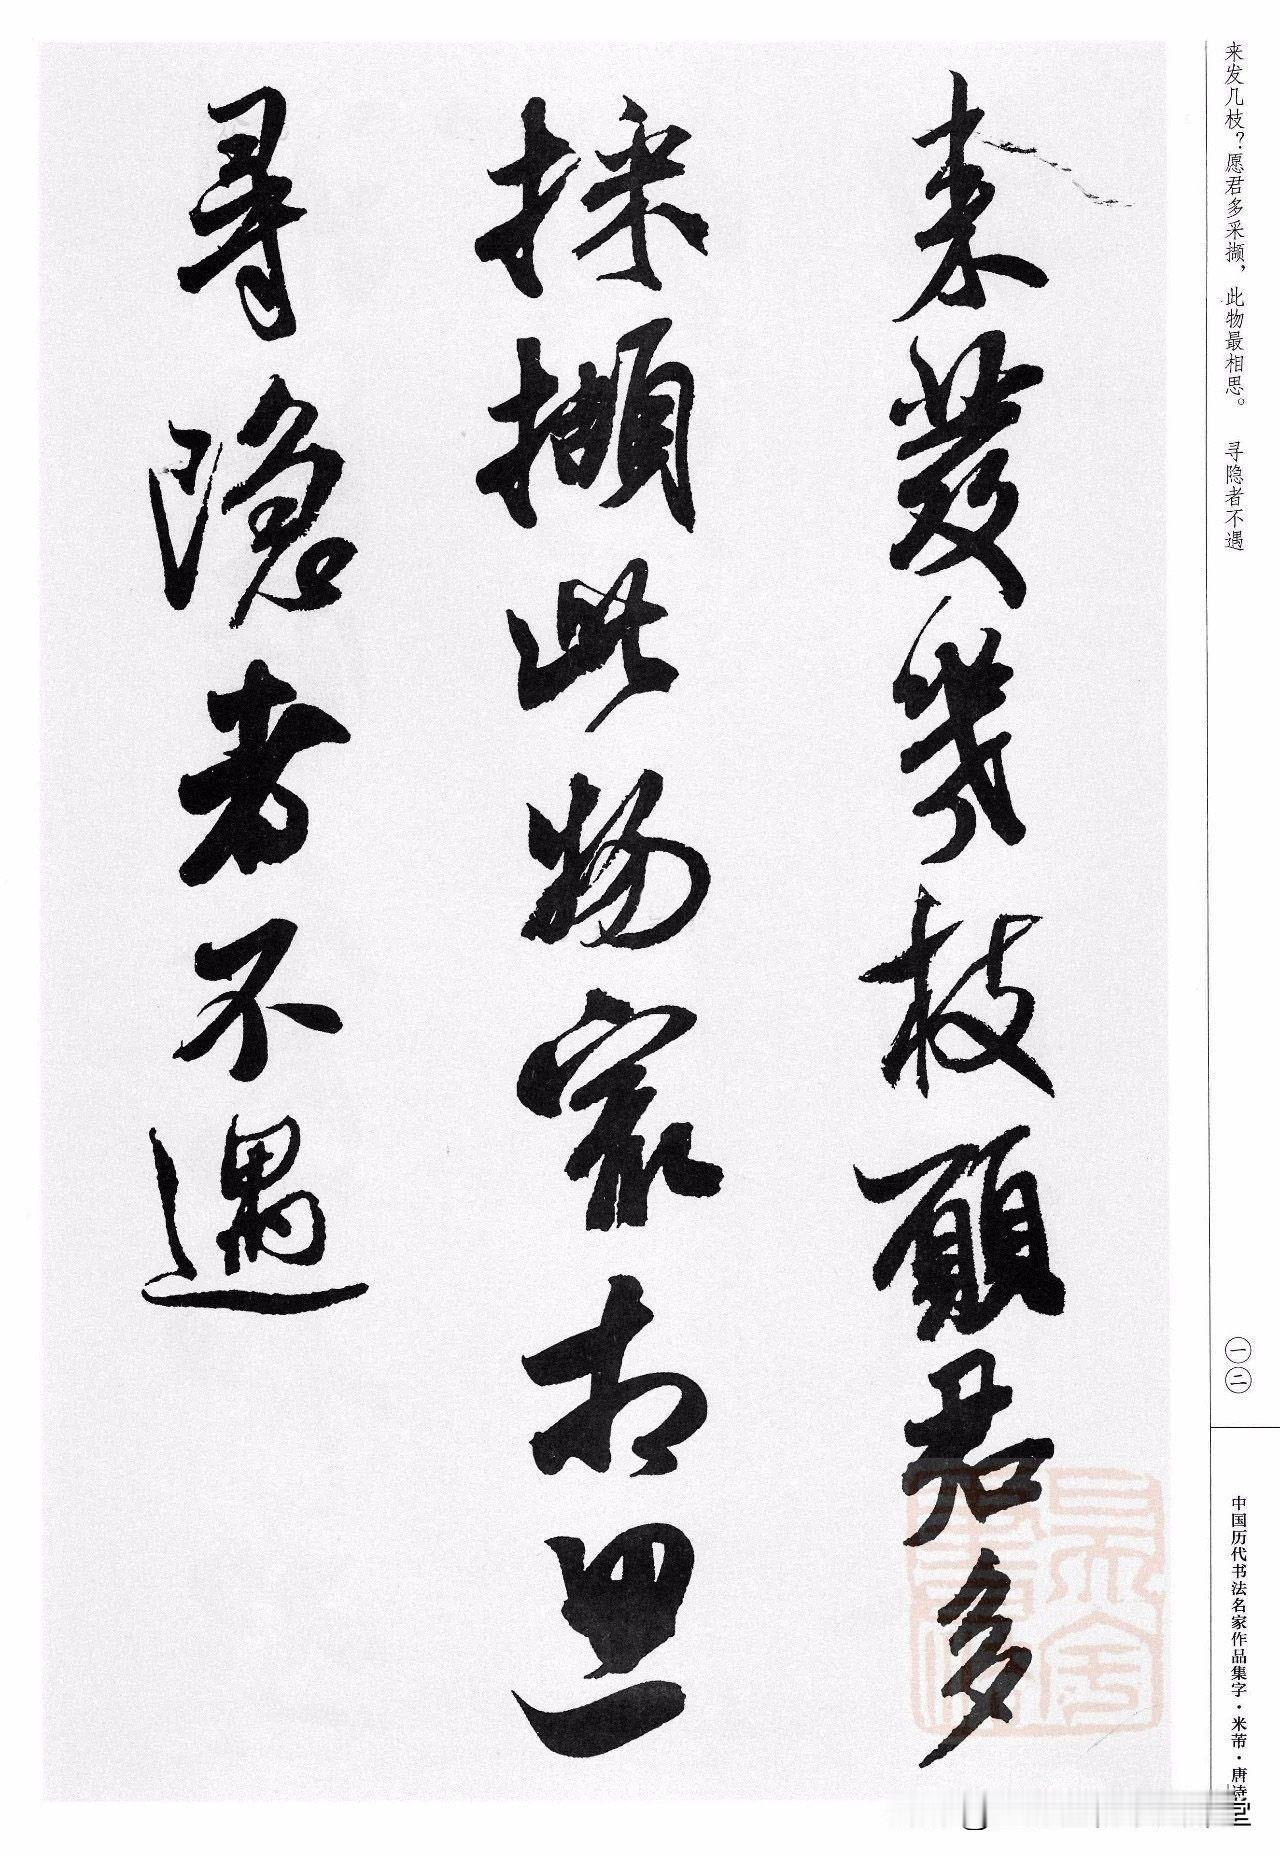 来发几枝？愿君多采撷，此物最相思。 寻隐者不遇
来發幾枝願君多
採擷此物冣相思
尋隱者不遇
一二
中国历代书法名家作品集字·米芾·唐诗